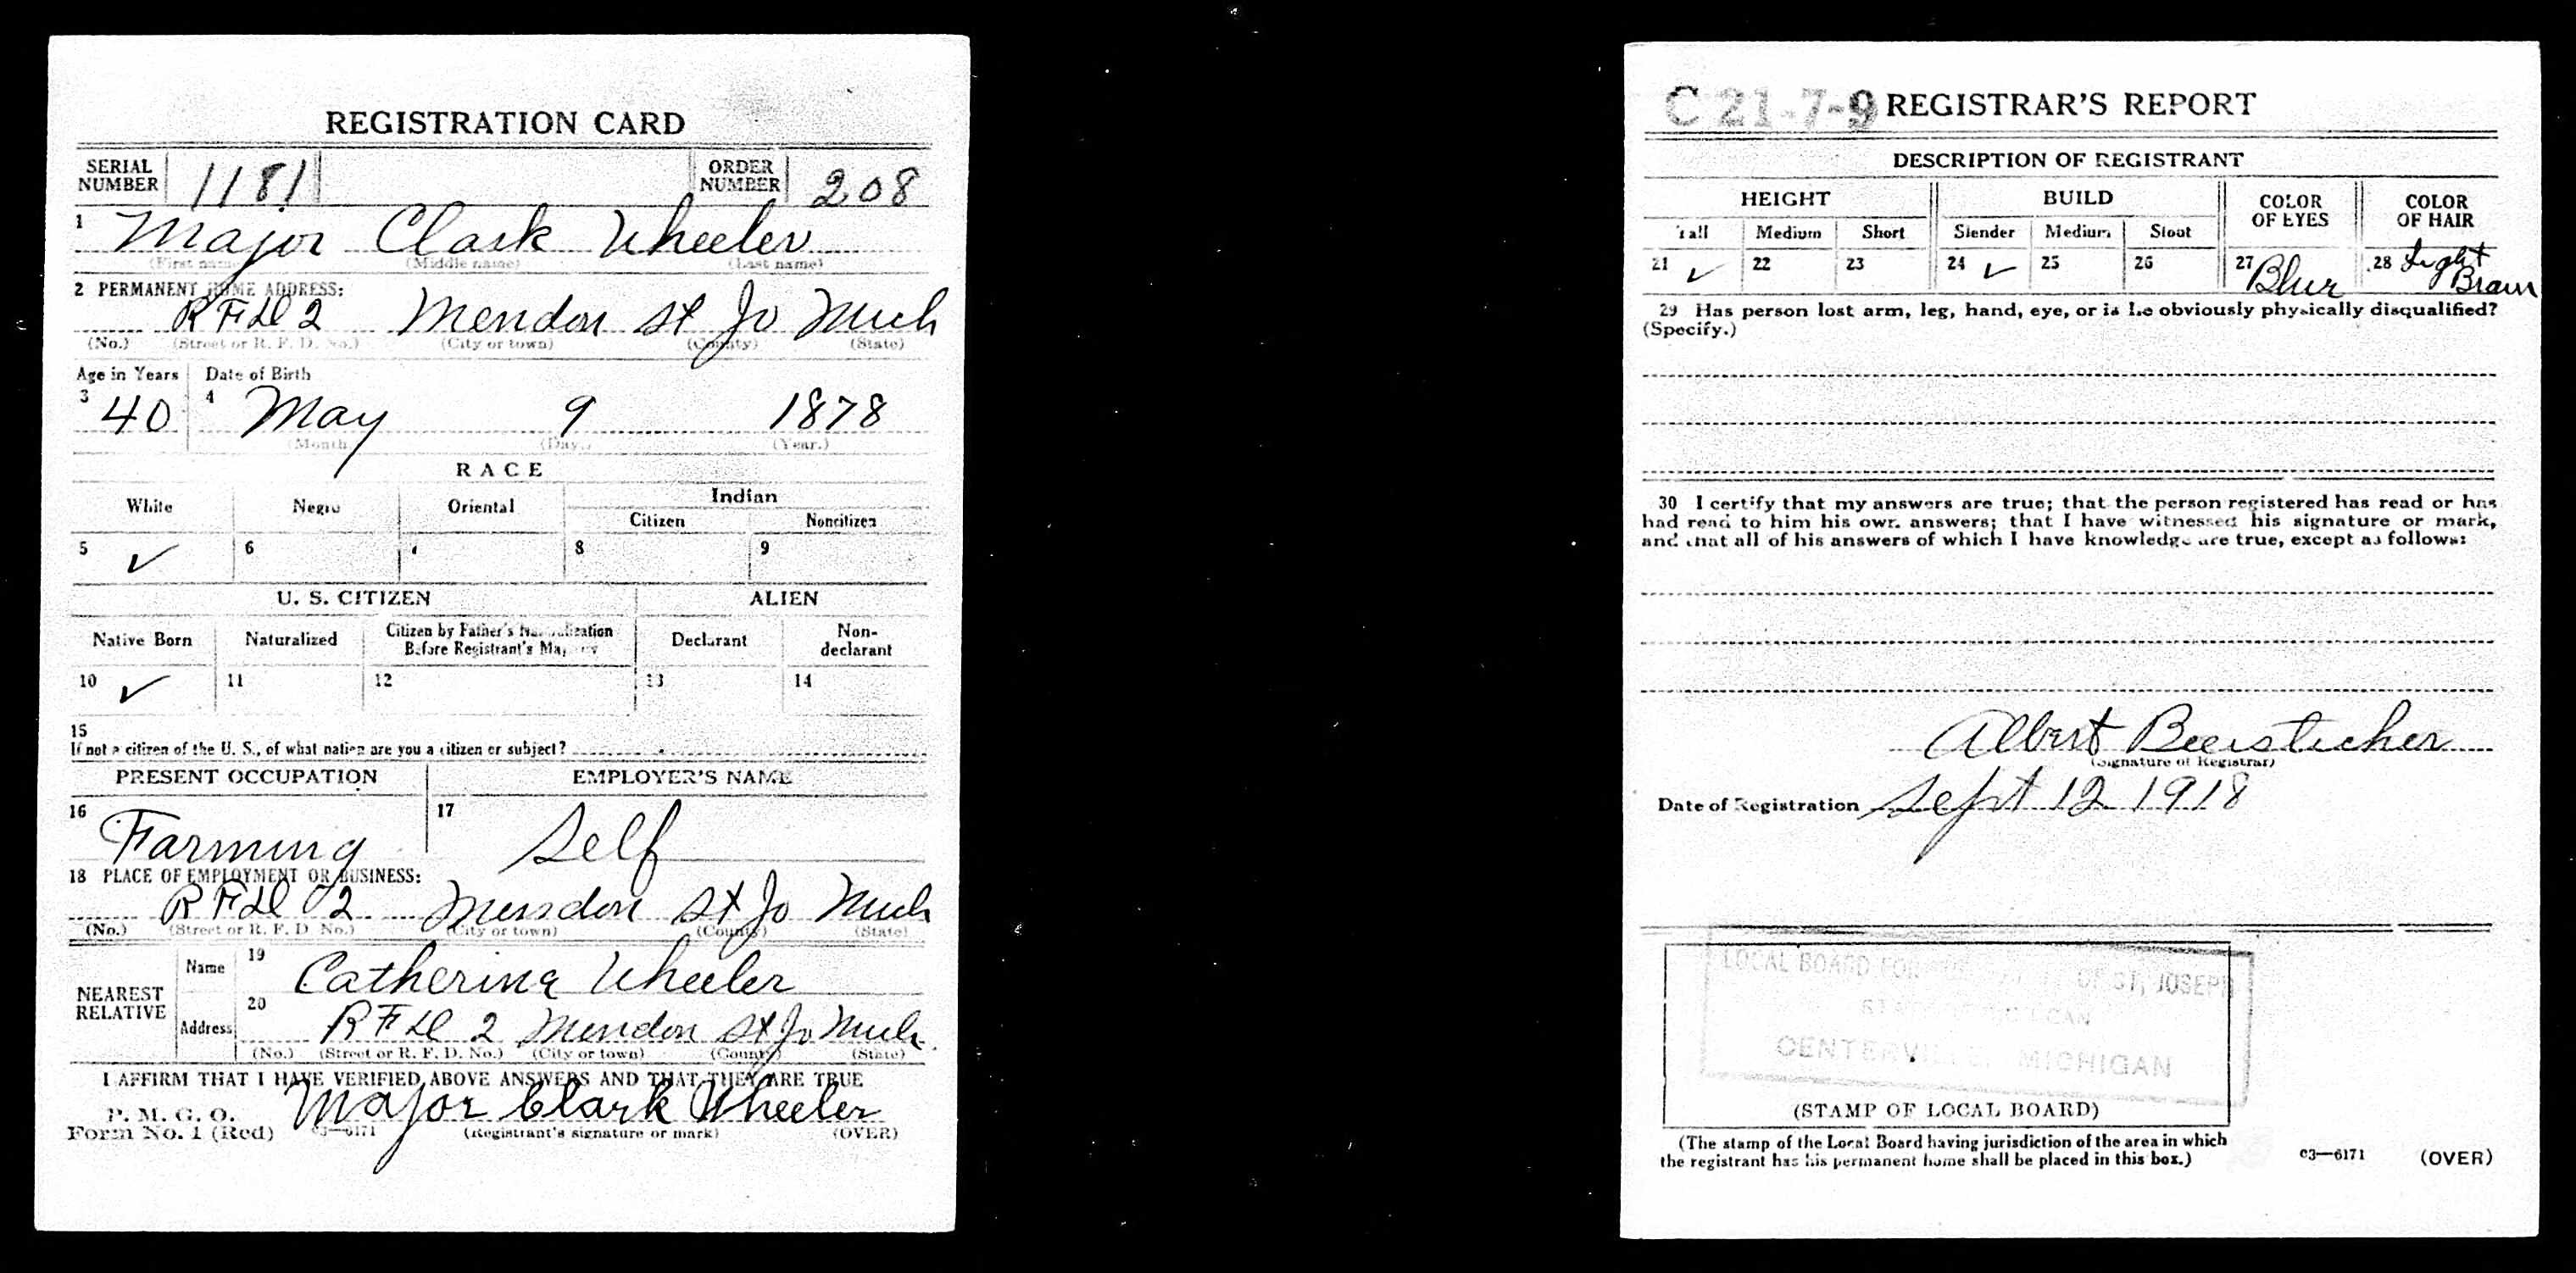 REGISTRATION CARD
SERIAL NUMBER 1181 ORDER NUMBER 208
1 Major Clark Wheeler
(First name) (Middle name) (Last name)
2 PERMANENT HOME ADDRESS:
RFD 2 Mendon St Jo Mich
(No.) (Street or R. F. D. No.) (City or town) (County) (State)
Age in Years Date of Birth
3 40 4 May 9 1878
(Month.) (Day.) (Year.)
RACE
White Negro Oriental Indian
Citizen Noncitizen
5 ✓ 6 8 9
U. S. CITIZEN ALIEN
Native Born Naturalized Citizen by Father's Naturalization Before Registrant's Majority Declarant Non-declarant
10 ✓ 11 12 13 14
15
If not a citizen of the U. S., of what nation are you a citizen or subject?
PRESENT OCCUPATION EMPLOYER'S NAME
16 Farming 17 Self
18 PLACE OF EMPLOYMENT OR BUSINESS:
RFD 2 Mendon St Jo Mich
(No.) (Street or R. F. D. No.) (City or town) (County) (State)
NEAREST RELATIVE Name 19 Catherine Wheeler
Address 20 RFD 2 Mendon St Jo Mich
(No.) (Street or R. F. D. No.) (City or town) (County) (State)
I AFFIRM THAT I HAVE VERIFIED ABOVE ANSWERS AND THAT THEY ARE TRUE
P. M. G. O.
Form No. 1 (Red) 03—6171 Major Clark Wheeler
(Registrant's signature or mark) (OVER)
C 21-7-9 REGISTRAR'S REPORT
DESCRIPTION OF REGISTRANT
HEIGHT BUILD COLOR OF EYES COLOR OF HAIR
Tall Medium Short Slender Medium Stout
21 ✓ 22 23 24 ✓ 25 26 27 Blue 28 Light Brown
29 Has person lost arm, leg, hand, eye, or is he obviously physically disqualified?
(Specify.)
30 I certify that my answers are true; that the person registered has read or has
had read to him his own answers; that I have witnessed his signature or mark,
and that all of his answers of which I have knowledge are true, except as follows:
Albert Beersticher
(Signature of Registrar)
Date of Registration Sept 12 1918
LOCAL BOARD FOR OF ST. JOSEPH
STATE OF MICHIGAN
CENTERVILLE, MICHIGAN
(STAMP OF LOCAL BOARD)
(The stamp of the Local Board having jurisdiction of the area in which
the registrant has his permanent home shall be placed in this box.)
03—6171 (OVER)